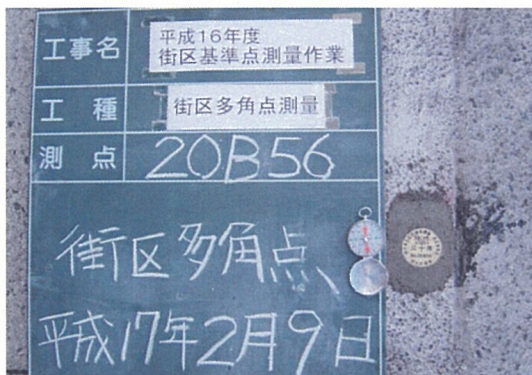 工事名
平成16年度
街区基準点測量作業
工種
街区多角点測量
測点
20B56
街区多角点
平成17年2月9日